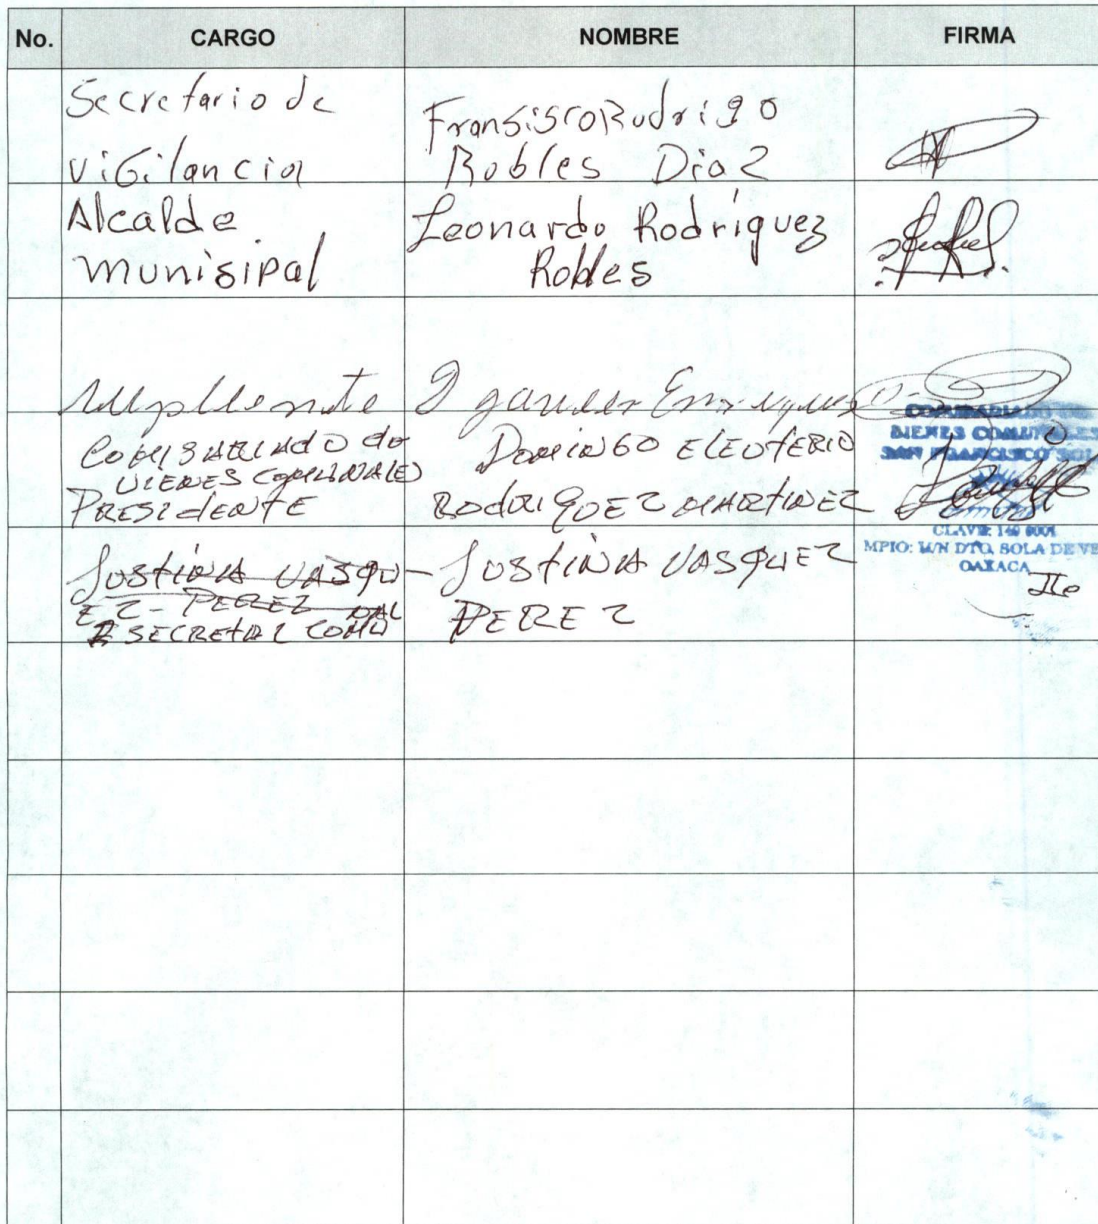 No. CARGO NOMBRE FIRMA
Secretario de
Vigilancia
Fransisco Rudrigo
Robles Diaz
Alcalde
munisipal
Leonardo Rodríguez
Robles
COMISARIADO do
VIENES COMUNALES
PRESIdENTE
DOMINGO ELEUTERIO
ROdRIGUEZ MARTINEZ
COMISARIADO DE
BIENES COMUNALES
SAN FRANCISCO SOL
CLAVE
MPIO: M/N DTO. SOLA DE VE
OAXACA
JUSTINA VASQU-
EZ - PEREZ
SECRETAR COMU
NAL
JUSTINA VASQUEZ
PEREZ